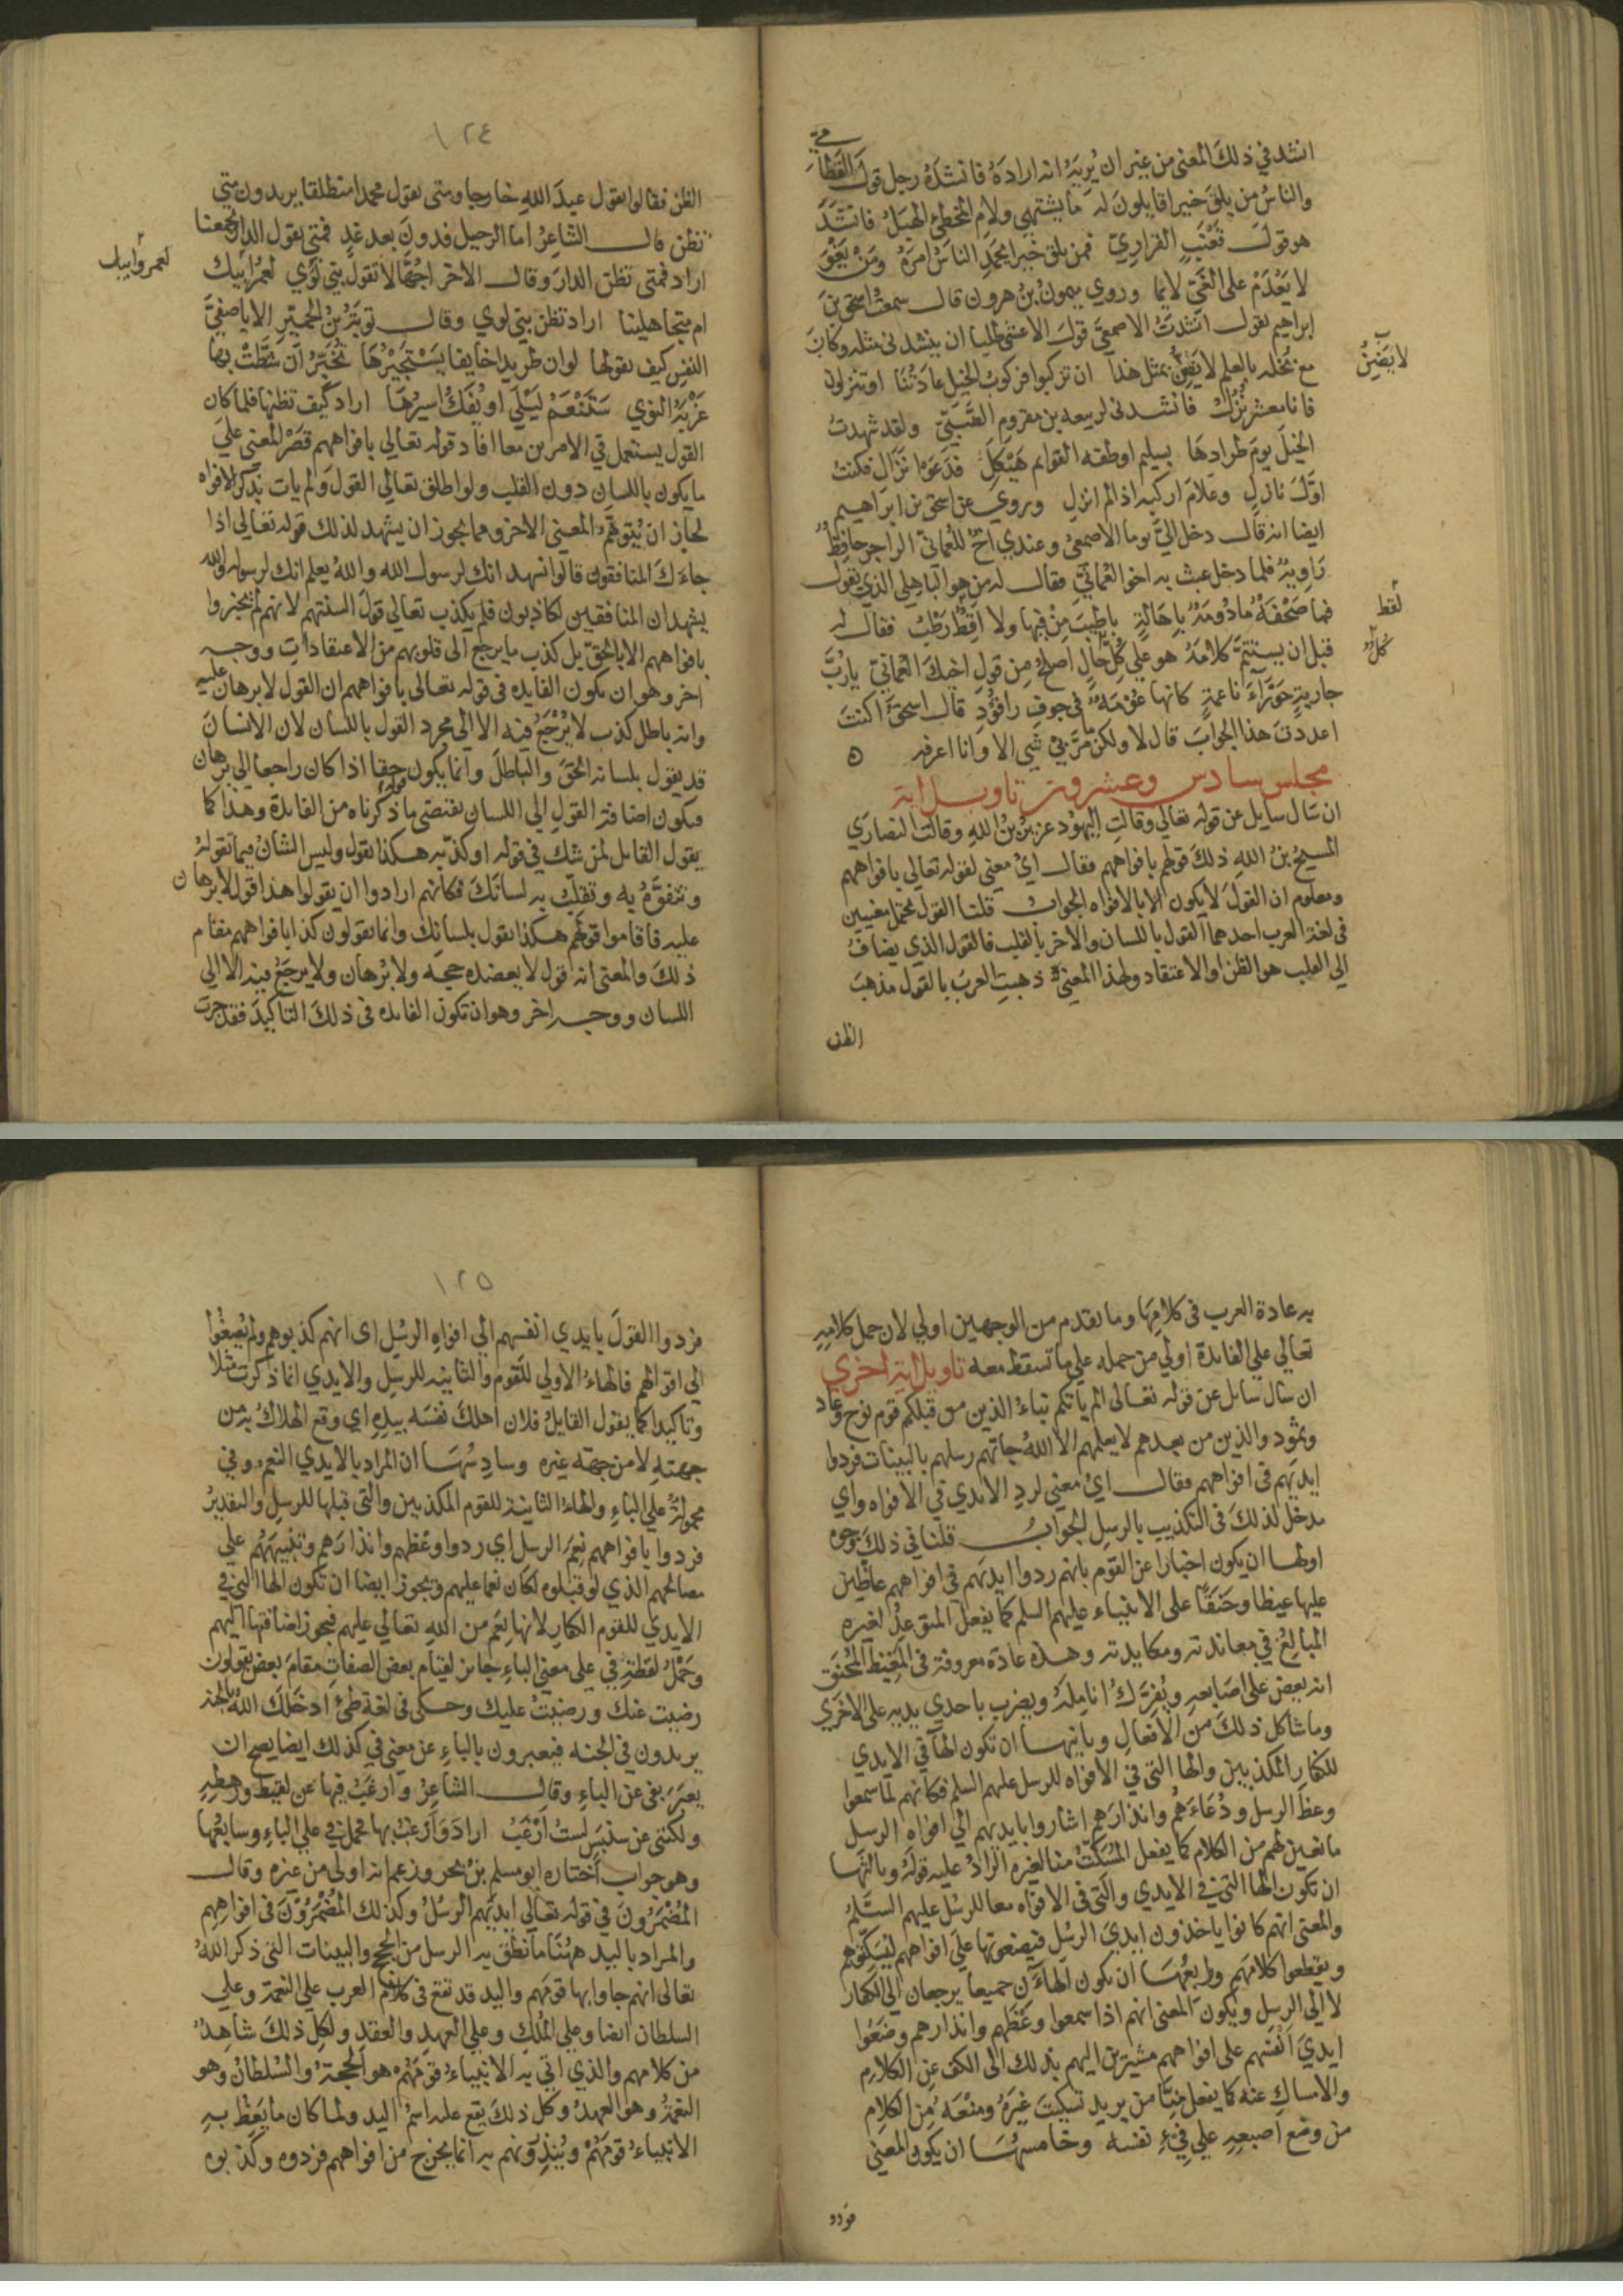 انشد في ذلك المعنى من غير ان يريه انه اراده فانشده رجل قول القطامي
والناس من يلق خيرا قايلون له ما يشتهي ولام المخطي الهبل فانشد
هو قول قعنب الفزاري فمن يلق خيرا يحمد الناس امره ومن يغو
لا يعدم على الغي لايما وروي ميمون بن هرون قال سمعت اسحق بن
ابراهيم يقول انشدت الاصمعي قول الاعشى طلبا ان ينشدني مثله وكان
مع بخله بالعلم لا يضن بمثل هذا ان تركبوا فركوب الخيل عادتنا او تنزلون
فانا معشر نزل فانشدني لربيعه بن مقروم الضبي ولقد شهدت
الخيل يوم طرادها بسليم اوظفه القوايم هيكل فدعوا نزال فكنت
اول نازل وعلام اركبه اذا لم انزل وروي عن اسحق بن ابراهيم
ايضا انه قال دخل الي يوما الاصمعي وعندي اخ للعماني الراجز حافظ
راوية فلما دخل عبث به اخو العماني فقال له من هو الباهلي الذي يقول
فما صحفة مادومة باهالة باطيب من فيها ولا اقط رطب فقال له
قبل ان يستتم كلامه هو علي كل حال اصلح من قول اخيك العماني يا رب
جارية حوراء ناعمة كانها عومة في جوف راقود قال اسحق اكنت
اعددت هذا الجواب قال لا ولكن ما مر بي شي الا وانا اعرفه ه
مجلس سادس وعشرون تاويل اية
ان سال سايل عن قوله تعالي وقالت اليهود عزير بن الله وقالت النصاري
المسيح بن الله ذلك قولهم بافواههم فقال اي معني لقوله تعالي بافواههم
ومعلوم ان القول لا يكون الا بالافواه الجواب قلنا القول يحتمل معنيين
في لغة العرب احدهما القول باللسان والاخر بالقلب فالقول الذي يضاف
الي القلب هو الظن والاعتقاد ولهذا المعني ذهبت العرب بالقول مذهب
الظن
لا يضن
لقط
كل
١٢٤
الظن فقالوا تقول عبد الله خارجا ومتي تقول محمدا منطلقا يريدون متي
تظن قال الشاعر اما الرحيل فدون بعد غد فمتي تقول الدار تجمعنا
اراد فمتي تظن الدار وقال الاخر اجهالا تقول بني لوي لعمر ابيك
ام متجاهلينا اراد تظن بني لوي وقال توبة بن الحمير الا يا صفي
النفس كيف تقولها لو ان طريدا خايفا يستجيرها تخبر ان شطت بها
غربة النوي ستنعم ليلي او يفك اسيرها اراد كيف تظنها فلما كان
القول يستعمل في الامرين معا افاد قوله تعالي بافواههم قصر المعني علي
ما يكون باللسان دون القلب ولو اطلق تعالي القول ولم يات بذكر الافواه
لجاز ان يتوهم المعني الاخر ومما يجوز ان يشهد لذلك قوله تعالي اذا
جاءك المنافقون قالوا نشهد انك لرسول الله والله يعلم انك لرسوله والله
يشهد ان المنافقين لكاذبون فلم يكذب تعالي قول السنتهم لانهم لم يخبروا
بافواههم الا بالحق بل كذب ما يرجع الي قلوبهم من الاعتقادات ووجه
اخر وهو ان تكون الفايده في قوله تعالي بافواههم ان القول لا برهان عليه
وانه باطل كذب لا يرجع فيه الا الي مجرد القول باللسان لان الانسان
قد يقول بلسانه الحق والباطل وانما يكون حقا اذا كان راجعا الي برهان
فيكون اضافة القول الي اللسان يقتضي ما ذكرناه من الفايدة وهذا كما
يقول القايل لمن شك في قوله او كذبه هكذا يقول وليس الشان فيما تقوله
وتتفوه به وتقلب به لسانك فكانهم ارادوا ان يقولوا هذا قول لا برهان
عليه فاقاموا قولهم هكذا تقول بلسانك وانما يقولون كذا بافواههم مقام
ذلك والمعني انه قول لا يعضده حجة ولا برهان ولا يرجع فيه الا الي
اللسان ووجه اخر وهو ان تكون الفايده في ذلك التاكيد فقد جرت
لعمرو ابيك
به عادة العرب في كلامها وما تقدم من الوجهين اولي لان حمل كلامه
تعالي علي الفايدة اولي من حمله علي ما تسقط معه تاويل اية اخري
ان سال سايل عن قوله تعالي الم ياتكم نباء الذين من قبلكم قوم نوح وعاد
وثمود والذين من بعدهم لا يعلمهم الا الله جاتهم رسلهم بالبينات فردوا
ايديهم في افواههم فقال اي معني لرد الايدي في الافواه واي
مدخل لذلك في التكذيب بالرسل الجواب قلنا في ذلك وجوه
اولها ان يكون اخبارا عن القوم بانهم ردوا ايديهم في افواههم عاضين
عليها غيظا وحنقا علي الانبياء عليهم السلم كما يفعل المتوعد لغيره
المبالغ في معاندته ومكايدته وهذه عادة معروفة في المغيظ المحنق
انه يعض علي اصابعه ويفرك انامله ويضرب باحدي يديه علي الاخري
وما شاكل ذلك من الافعال وثانيها ان تكون الها في الايدي
للكفار المكذبين والها التي في الافواه للرسل عليهم السلم فكانهم لما سمعوا
وعظ الرسل ودعاءهم وانذارهم اشاروا بايديهم الي افواه الرسل
مانعين لهم من الكلام كما يفعل المسكت منا لغيره الراد عليه قوله وثالثها
ان تكون الها التي في الايدي والتي في الافواه معا للرسل عليهم السلم
والمعني انهم كانوا ياخذون ايدي الرسل فيضعونها علي افواههم ليسكتوهم
ويقطعوا كلامهم ورابعها ان يكون الهاءان جميعا يرجعان الي الكفار
لا الي الرسل ويكون المعني انهم اذا سمعوا وعظهم وانذارهم وضعوا
ايدي انفسهم علي افواههم مشيرين اليهم بذلك الي الكف عن الكلام
والامساك عنه كما يفعل منا من يريد تسكيت غيره ومنعه من الكلام
من وضع اصبعه علي في نفسه وخامسها ان يكون المعني
فردو
١٢٥
فردوا القول بايدي انفسهم الي افواه الرسل اي انهم كذبوهم ولم يصغوا
الي اقوالهم فالهاء الاولي للقوم والثانيه للرسل والايدي انما ذكرت مثلا
وتاكيدا كما يقول القايل فلان اهلك نفسه بيده اي وقع الهلاك به من
جهته لا من جهة غيره وسادسها ان المراد بالايدي النعم وفي
محمولة علي الباء والهاء الثانية للقوم المكذبين والتي قبلها للرسل والتقدير
فردوا بافواههم نعم الرسل اي ردوا وعظهم وانذارهم وتنبيههم علي
مصالحهم الذي لو قبلوه لكان نعما عليهم ويجوز ايضا ان تكون الها التي في
الايدي للقوم الكفار لانها نعم من الله تعالي عليهم فيجوز اضافتها اليهم
وحمل لفظة في علي معني الباء جايز لقيام بعض الصفات مقام بعض يقولون
رضيت عنك ورضيت عليك وحكي في لغة طي ادخلك الله بالجنة
يريدون في الجنه فيعبرون بالباء عن معني في كذلك ايضا يصح ان
يعبر بفي عن الباء وقال الشاعر وارغب فيها عن لقيط ورهطه
ولكنني عن سنبس لست ارغب اراد وارغب بها فحمل في علي الباء وسابعها
وهو جواب اختاره ابو مسلم بن بحر وزعم انه اولي من غيره وقال
المضمرون في قوله تعالي ايديهم الرسل وكذلك المضمرون في افواههم
والمراد باليد ههنا ما نطق به الرسل من الحجج والبينات التي ذكر الله
تعالي انهم جاوا بها قومهم واليد قد تقع في كلام العرب علي النعمة وعلي
السلطان ايضا وعلي الملك وعلي العهد والعقد ولكل ذلك شاهد
من كلامهم والذي اتي به الانبياء قومهم هو الحجة والسلطان وهو
النعمة وهو العهد وكل ذلك يقع عليه اسم اليد ولما كان ما يعظ به
الانبياء قومهم وينذرونهم به انما يخرج من افواههم فردوه وكذبوه